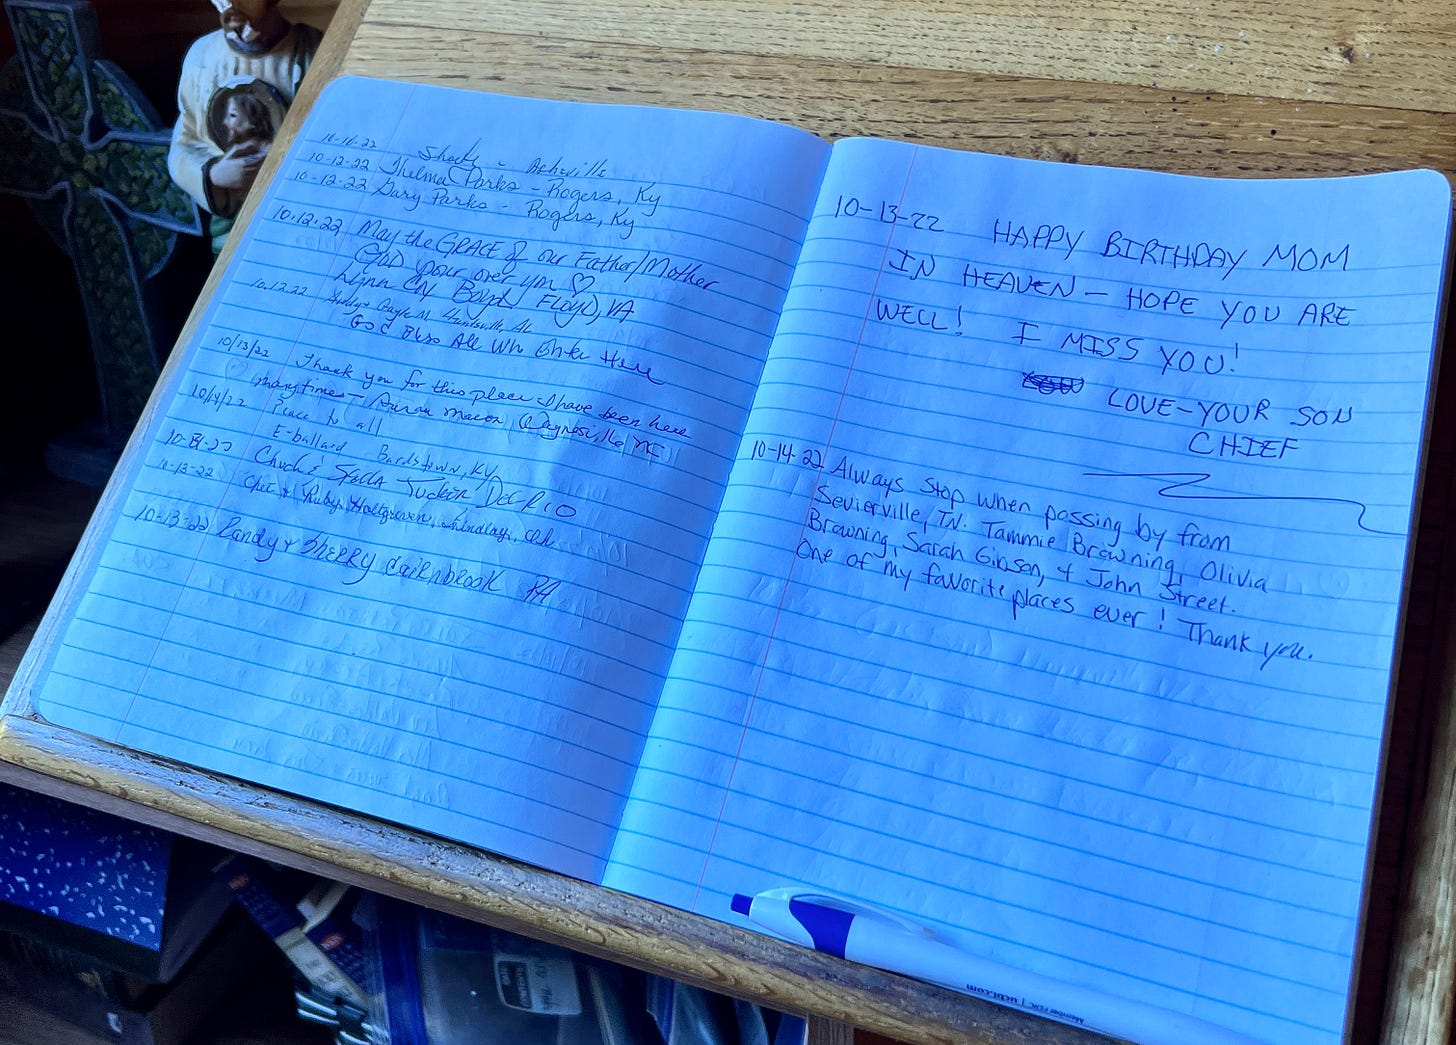 10-11-22 Shady - Asheville
10-12-22 Thelma Parks - Rogers, Ky
10-12-22 Gary Parks - Rogers, Ky
10.12.22 May the GRACE of our Father/Mother
God pour over you ♡
Lynn Boyd Floyd, VA
10.12.22 Gayle M. Huntsville, AL
God Bless All Who Enter Here
10/13/22 Thank you for this place I have been here
many times - Macon, Waynesville NC
10/14/22 Peace to all
E-ballard Bardstown, KY
Chuck & Stella Tucker Del Rio
10-13-22 Chet & Ruby
10-13-22 Randy & Sherry Cairnbrook PA
10-13-22 HAPPY BIRTHDAY MOM
IN HEAVEN - HOPE YOU ARE
WELL! I MISS YOU!
LOVE-YOUR SON
CHIEF
10-14-22 Always stop when passing by from
Sevierville, TN. Tammie Browning, Olivia
Browning, Sarah Gibson, & John Street.
One of my favorite places ever! Thank you.
Member FDIC | ucbi.com